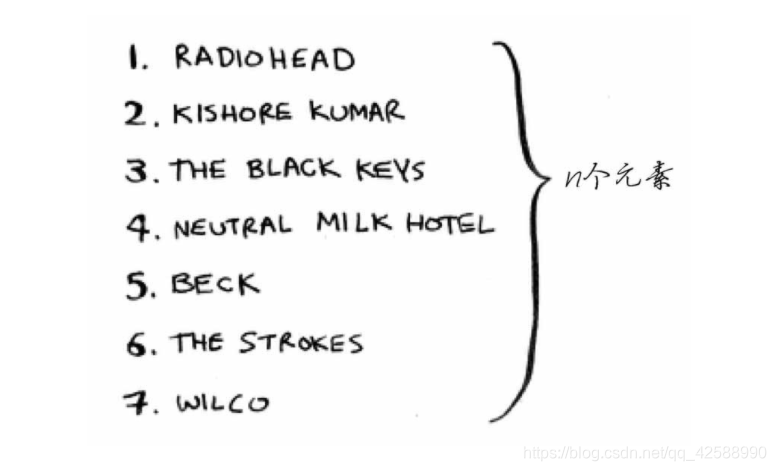 1. RADIOHEAD
2. KISHORE KUMAR
3. THE BLACK KEYS
n个元素
4. NEUTRAL MILK HOTEL
5. BECK
6. THE STROKES
7. WILCO
https://blog.csdn.net/qq_42588990